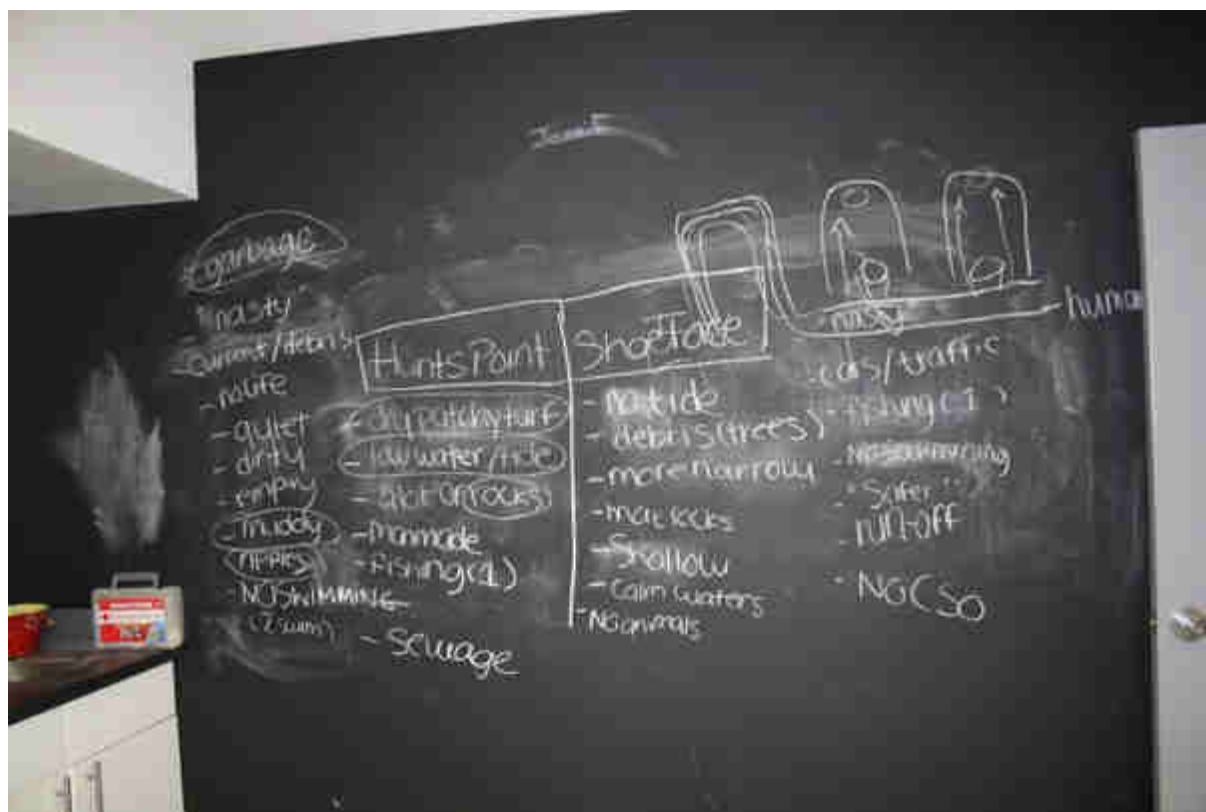 garbage
"nasty"
- current/debris
- no life
- quiet
- dirty
- empty
- muddy
- ripples
- NO SWIMMING
(2 swim)
Hunts Point
- dry patchy turf
- low water/tide
- alot of rocks
- manmade
- fishing (1)
- sewage
Shoelace
- no tide
- debris (trees)
- more narrow
- Shallow
- calm waters
- No animals
nasty
- cars/traffic
- fishing (1)
- No Swimming
- "Safer"
- run-off
- NO CSO